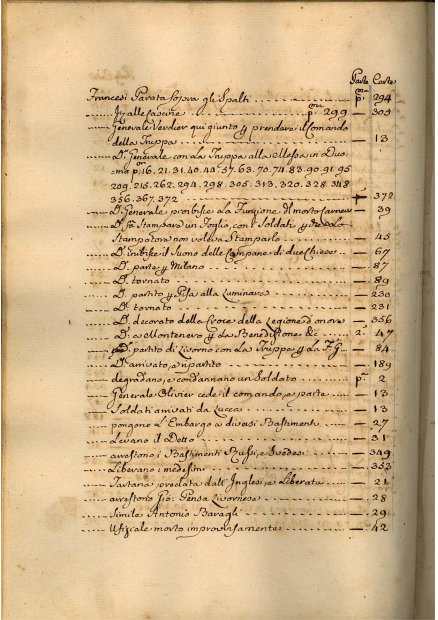 Parte Carte
Francesi Parata sopra gli Spalti p.ma 294
In alle Cascine p.ma 299 303
Generale Verdier qui giunto p prendersi il Comando
della Truppa 13
D.o Generale con la Truppa alla Messa in Duo
mo p.ma 16. 21. 31. 40. 44. 57. 63. 70. 74. 83. 90. 91. 95
209. 215. 262. 294. 298. 305. 313. 320. 328. 348
356. 367. 372 372
D.o Generale proibisce la Funzione d morto Carnev 39
D.o Stampava un Foglio, con Soldati
Stampatore non voleva Stamparlo 45
D.o inibisce il Suono delle Campane di due Chiese 67
D.o parte p Milano 87
D.o tornato 89
D.o partito p Pisa alla Luminara 230
D.o tornato 231
D.o decorato della Croce della Legione d'onore 356
D.o a Montenero p la Benedizione &c 2. 47
D.o partito di Livorno con la Truppa p la F.G. 84
D.o arrivato, e ripartito 189
degradano, e condannano un Soldato p.ma 2
Generale Olivier cede il comando, e parte 13
Soldati arrivati da Lucca 13
pongono L'Embargo a diversi Bastimenti 27
Levano il Detto 31
arrestono i Bastimenti Russi, e Svedesi 349
Liberano i medesimi 353
Tartana predata dall'Inglesi, e Liberata 21
arrestono Gio: Gensa Livornese 28
Simile Antonio Baragli 29
Ufiziale morto improvvisamente 42